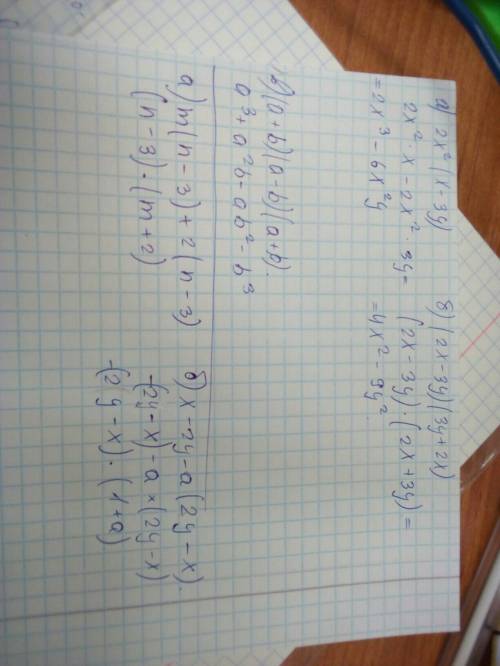 а) 2x² (x + 3y)
2x² · x - 2x² · 3y =
= 2x³ - 6x²y
б) (2x - 3y)(3y + 2x)
(2x - 3y) · (2x + 3y) =
= 4x² - 9y²
в) (a + b)(a - b)(a + b).
a³ + a²b - ab² - b³
а) m(n - 3) + 2(n - 3)
(n - 3) · (m + 2)
б) x - 2y - a(2y - x).
-(2y - x) - a × (2y - x)
-(2y - x) · (1 + a)